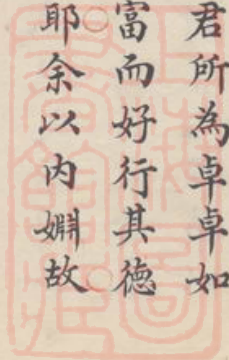 君所為卓卓如
富而好行其德
耶余以内婣故